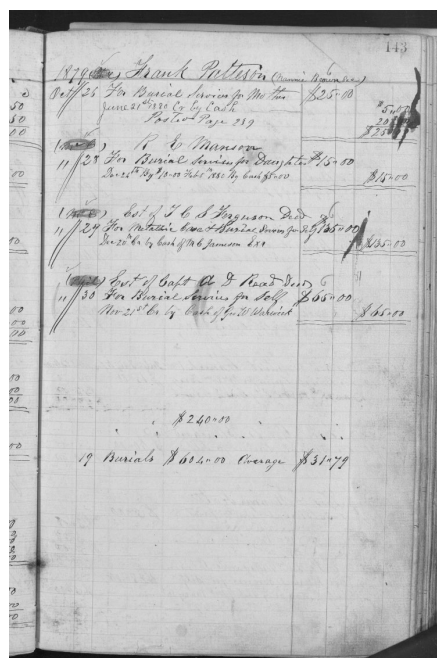 143
1879 Frank Patteson
Oct 25 For Burial Services for Mother $25=00
June 21st 1880 Cr By Cash $5.00
Posted Page 239 20
$25
R E Manson
" 28 For Burial Services for Daughter $15=00
Dec 24th By $10=00 Feby 1880 By Cash $5=00 $15=00
Est of T C S Ferguson Decd
" 29 For Metallic Case & Burial Services for Self $135=00
Dec 20 Cr by Cash of M C Jameson Exr $135=00
Est of Capt A D Read Decd
" 30 For Burial Services for Self $65=00
Nov 21st Cr by Cash of Geo W Warwick $65=00
$240=00
19 Burials $604=00 Average $31=79